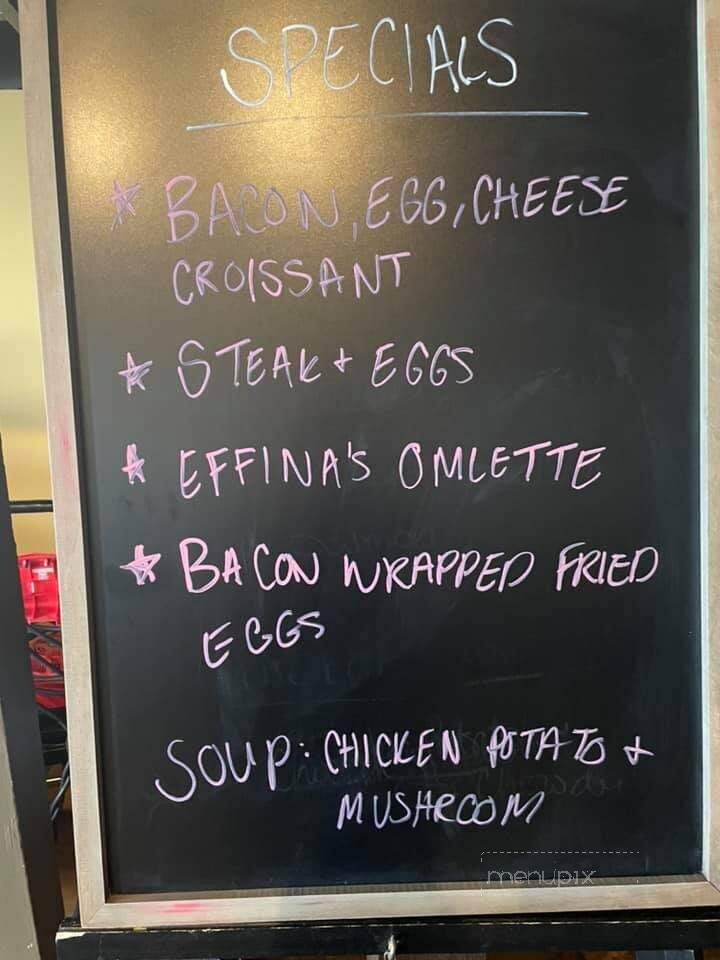 SPECIALS
* BACON, EGG, CHEESE
CROISSANT
* STEAK + EGGS
* EFFINA'S OMLETTE
* BACON WRAPPED FRIED
EGGS
SOUP: CHICKEN POTATO +
MUSHROOM
menupix